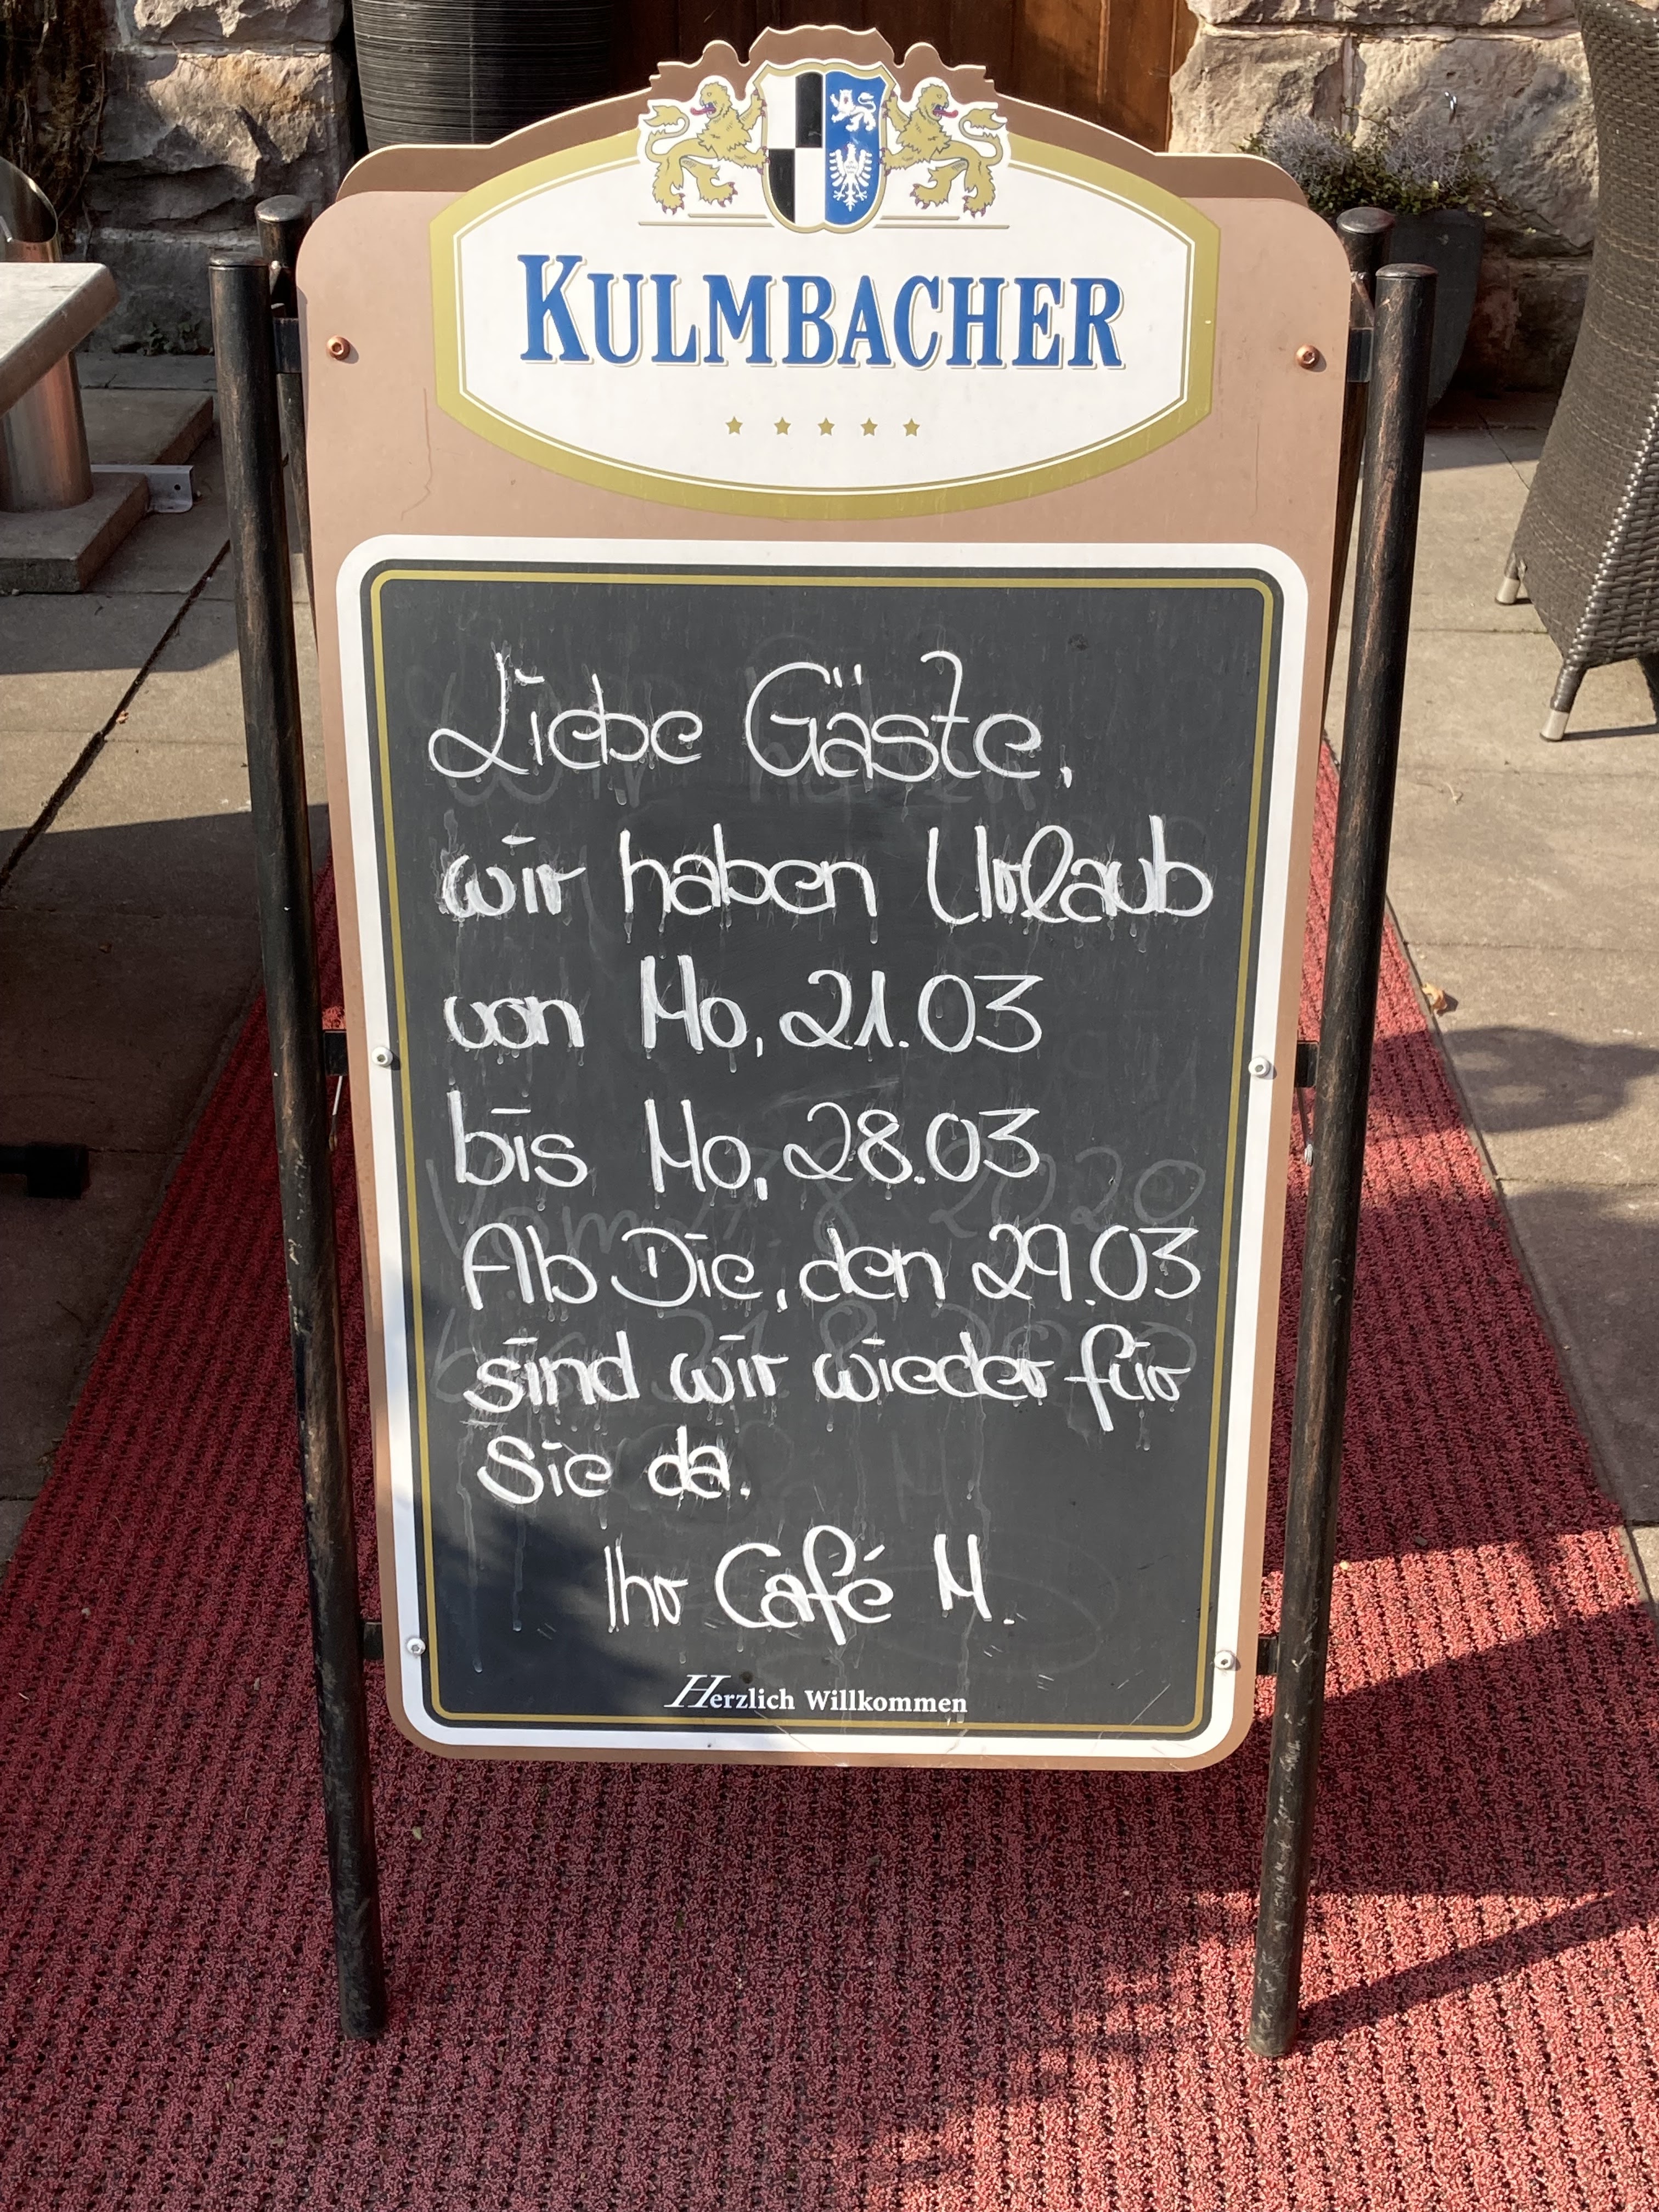 KULMBACHER
Liebe Gäste,
wir haben Urlaub
von Mo, 21.03
bis Mo, 28.03
Ab Die, den 29.03
sind wir wieder für
Sie da.
Ihr Café M.
Herzlich Willkommen